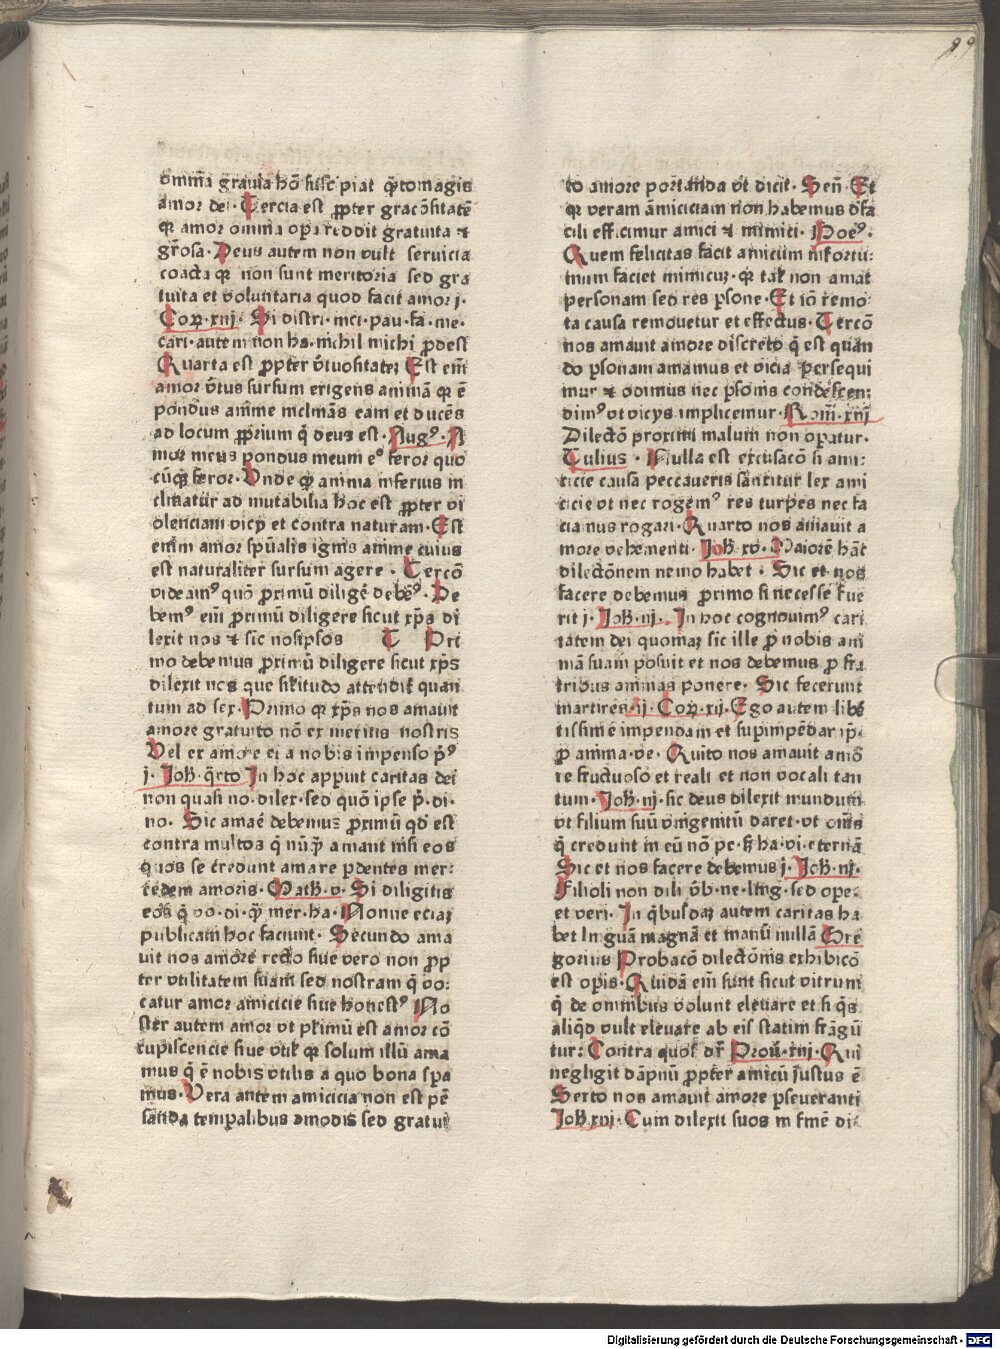 99
om̄ia grauia hō suscipiat q̄tomagis
amor dei · Tercia est ꝓpter gracōsitatē
qꝛ amor omnia opa reddit gratuita ⁊
gr̄osa · Deus autem non vult seruicia
coacta qꝛ non sunt meritoria sed gra
tuita et voluntaria quod facit amor j ·
Corꝝ · xiij · Si distri · mei · pau · fa · me ·
cari · autem non ha · nichil michi ꝓdest
Quarta est ꝓpter v̓tuositatez Est em̄
amor v̓tus sursum erigens animā qꝛ ē
pondus anime inclinās eam et ducēs
ad locum ꝓprium q̄ deus est · Augꝰ · A
mor meus pondus meum eº feror quo
cūqꝫ feror · Vnde qꝫ anima inferius in
clinatur ad mutabilia hoc est ꝓpter vi
olenciam vicij et contra naturam · Est
enim amor spūalis ignis anime cuius
est naturaliter sursum agere · Tercō
videamꝰ quō ꝓximū diligē debēꝰ · De
bemꝰ em̄ ꝓximū diligere sicut xp̄s di
lexit nos ⁊ sic nosipsos T Pri
mo debemus ꝓximū diligere sicut xp̄s
dilexit nos que silitudo attendit̄ quan
tum ad sex · Primo qꝛ xp̄s nos amauit
amore gratuito nō ex meritis nostris
Vel ex amore ei a nobis impenso p̄ꝰ
j · Joh̄ · q̄rto In hoc apparuit caritas dei
non quasi no · dilex · sed quō ipse p̄ · di ·
no · Sic amaē debemus ꝓximū qd̄ est
contra multos q̄ nūq̄ amant nisi eos
quos se credunt amare ꝓdentes mer:
cēdem amoris · Math̄ · v · Si diligitis
eos q̄ vo · di · q̄ mer · ha · Nonne eciaꝫ
publicani hoc faciunt · Secundo ama
uit nos amore recto siue vero non ꝓp
ter vtilitatem suam sed nostram q̄ vo:
catur amor amicicie siue honestꝰ No
ster autem amor vt plimū est amor cō
cupiscencie siue vtil̄ qꝛ solum illū ama
mus q̄ ē nobis vtilis a quo bona spa
mus · Vera antem amicicia non est pē
sanda tempalibus amodis sed gratui
to amore portanda vt dicit · Sen̄ · Et
qꝛ veram āmiciciam non habemus d̓fa
cili efficimur amici ⁊ inimici · Poeꝰ ·
Quem felicitas facit amicum infortu:
nium faciet inimicuꝫ · qꝛ tal̄ non amat
personam sed res psone · Et iō remo
ta causa remouetur et effectus · Tercō
nos amauit amore discreto q̄ est quan
do psonam amamus et vicia persequi
mur ⁊ odimus nec psonis condescen:
dimꝰ vt vicijs implicemur · Rom̄ · xiij
Dilectō proximi malum non opatur ·
Tulius · Nulla est excusacō si ami:
cicie causa peccaueris sanctitur lex ami
cicie vt nec rogemꝰ res turpes nec fa
cianus rogati · Quarto nos amauit a
more vehementi · Joh̄ · xv · Maiorē hāc
dilectōnem nemo habet · Sic et nos
facere debemus ꝓximo si necesse fue
rit j · Joh̄ · iij · In hoc cognouimꝰ cari
tatem dei quoniaꝫ sic ille ꝓ nobis ani
mā suam posuit et nos debemus ꝓ fra
tribus animas ponere · Sic fecerunt
martires · ij · Corꝝ · xij · Ego autem libē
tissime impendam et supimpēdar ip̄e
ꝓ anima · ve · Quito nos amauit amō
re fructuoso et reali et non vocali tan
tum · Joh̄ · iij · sic deus dilexit mundum
vt filium suū vnigenitū daret · vt om̄is
q̄ credunt in eū nō pe · sꝫ ha · vi · eternā
Sic et nos facere debemus j · Joh̄ · iij ·
Filioli non dili v̓b · ne · ling · sed ope:
et veri · In q̄busdaꝫ autem caritas ha
bet linguā magnā et manū nullā Gre
gorius Probacō dilectōnis exhibicō
est opis · Quidā em̄ sunt sicut vitrum
q̄ de omnibus volunt eleuare et si q̄s
aliq̄d vult eleuare ab eis statim frāgū
tur: Contra quos dr̄ Prou̓ · xij · Qui
negligit dāpnū ꝓpter amicū iustus ē
Serto nos amauit amore ꝑseueranti
Joh̄ · xiij · Cum dilexit suos in finē di:
Digitalisierung gefördert durch die Deutsche Forschungsgemeinschaft - DFG